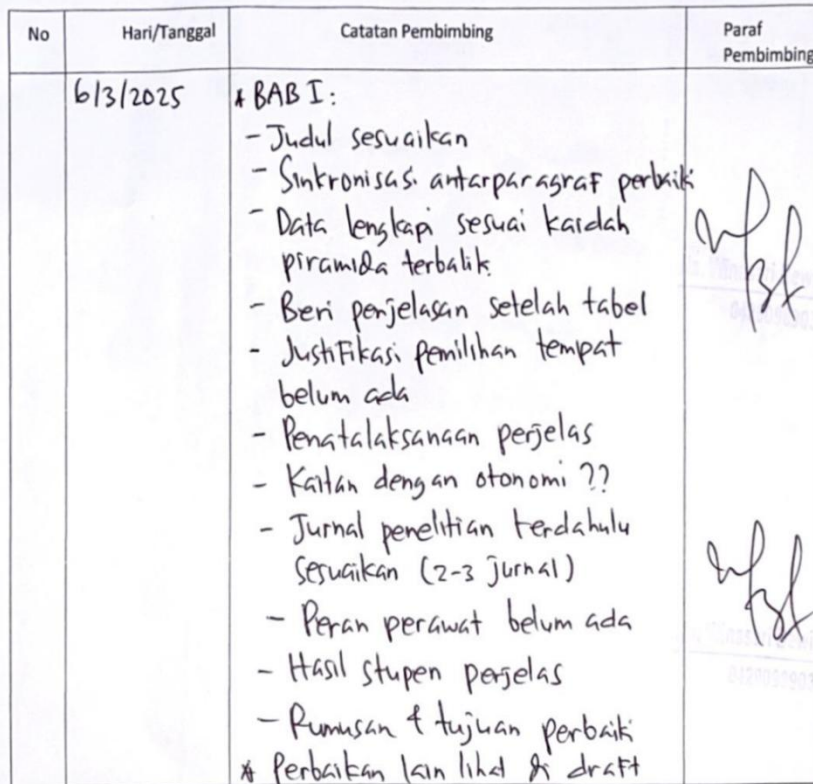 No Hari/Tanggal Catatan Pembimbing Paraf
Pembimbing
6/3/2025 * BAB I:
- Judul sesuaikan
- Sinkronisasi antarparagraf perbaiki
- Data lengkapi sesuai kaidah
piramida terbalik
- Beri penjelasan setelah tabel
- Justifikasi pemilihan tempat
belum ada
- Penatalaksanaan perjelas
- Kaitan dengan otonomi ??
- Jurnal penelitian terdahulu
sesuaikan (2-3 jurnal)
- Peran perawat belum ada
- Hasil stupen perjelas
- Rumusan & tujuan perbaiki
* Perbaikan lain lihat di draft